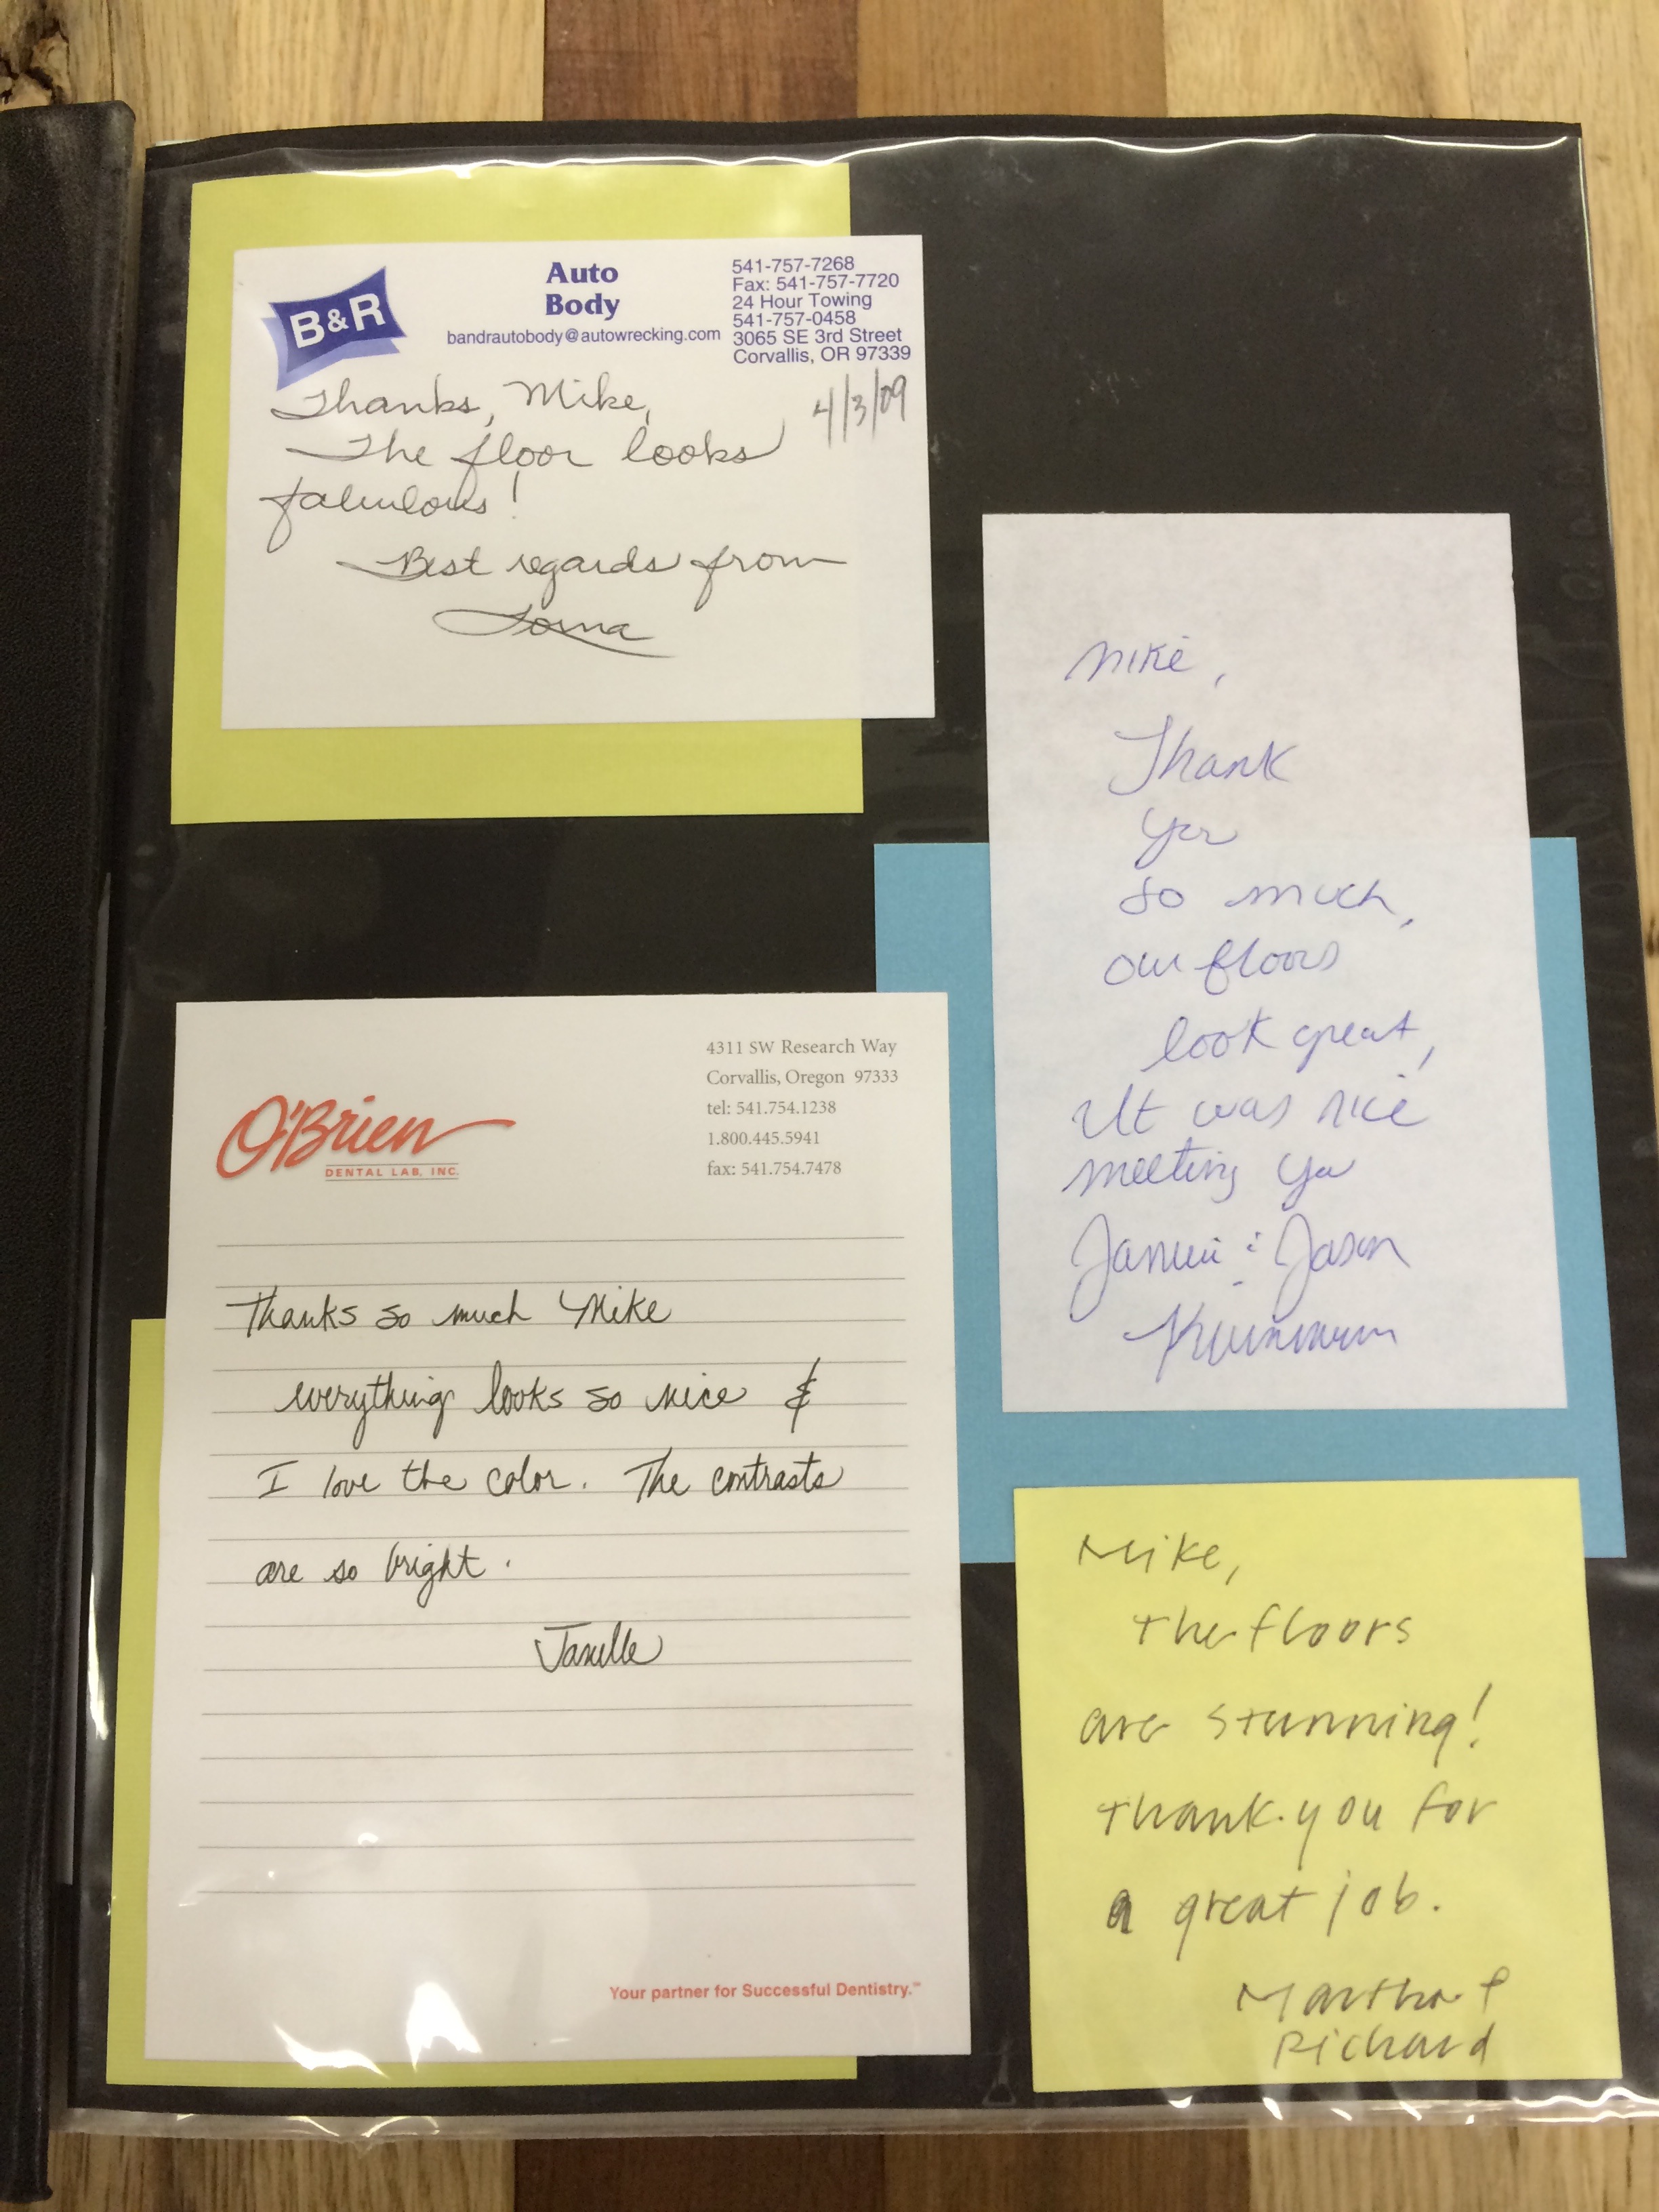 B&R
Auto
Body
bandrautobody@autowrecking.com
541-757-7268
Fax: 541-757-7720
24 Hour Towing
541-757-0458
3065 SE 3rd Street
Corvallis, OR 97339
4/3/09
Thanks, Mike,
The floor looks
fabulous!
Best regards from
Lorna
Mike,
Thank
you
so much,
our floors
look great,
It was nice
meeting you
& Jason
O'Brien
DENTAL LAB, INC.
4311 SW Research Way
Corvallis, Oregon 97333
tel: 541.754.1238
1.800.445.5941
fax: 541.754.7478
Thanks so much Mike
everything looks so nice &
I love the color. The contrasts
are so bright.
Janelle
Your partner for Successful Dentistry.℠
Mike,
The floors
are stunning!
Thank you for
a great job.
Martha &
Richard